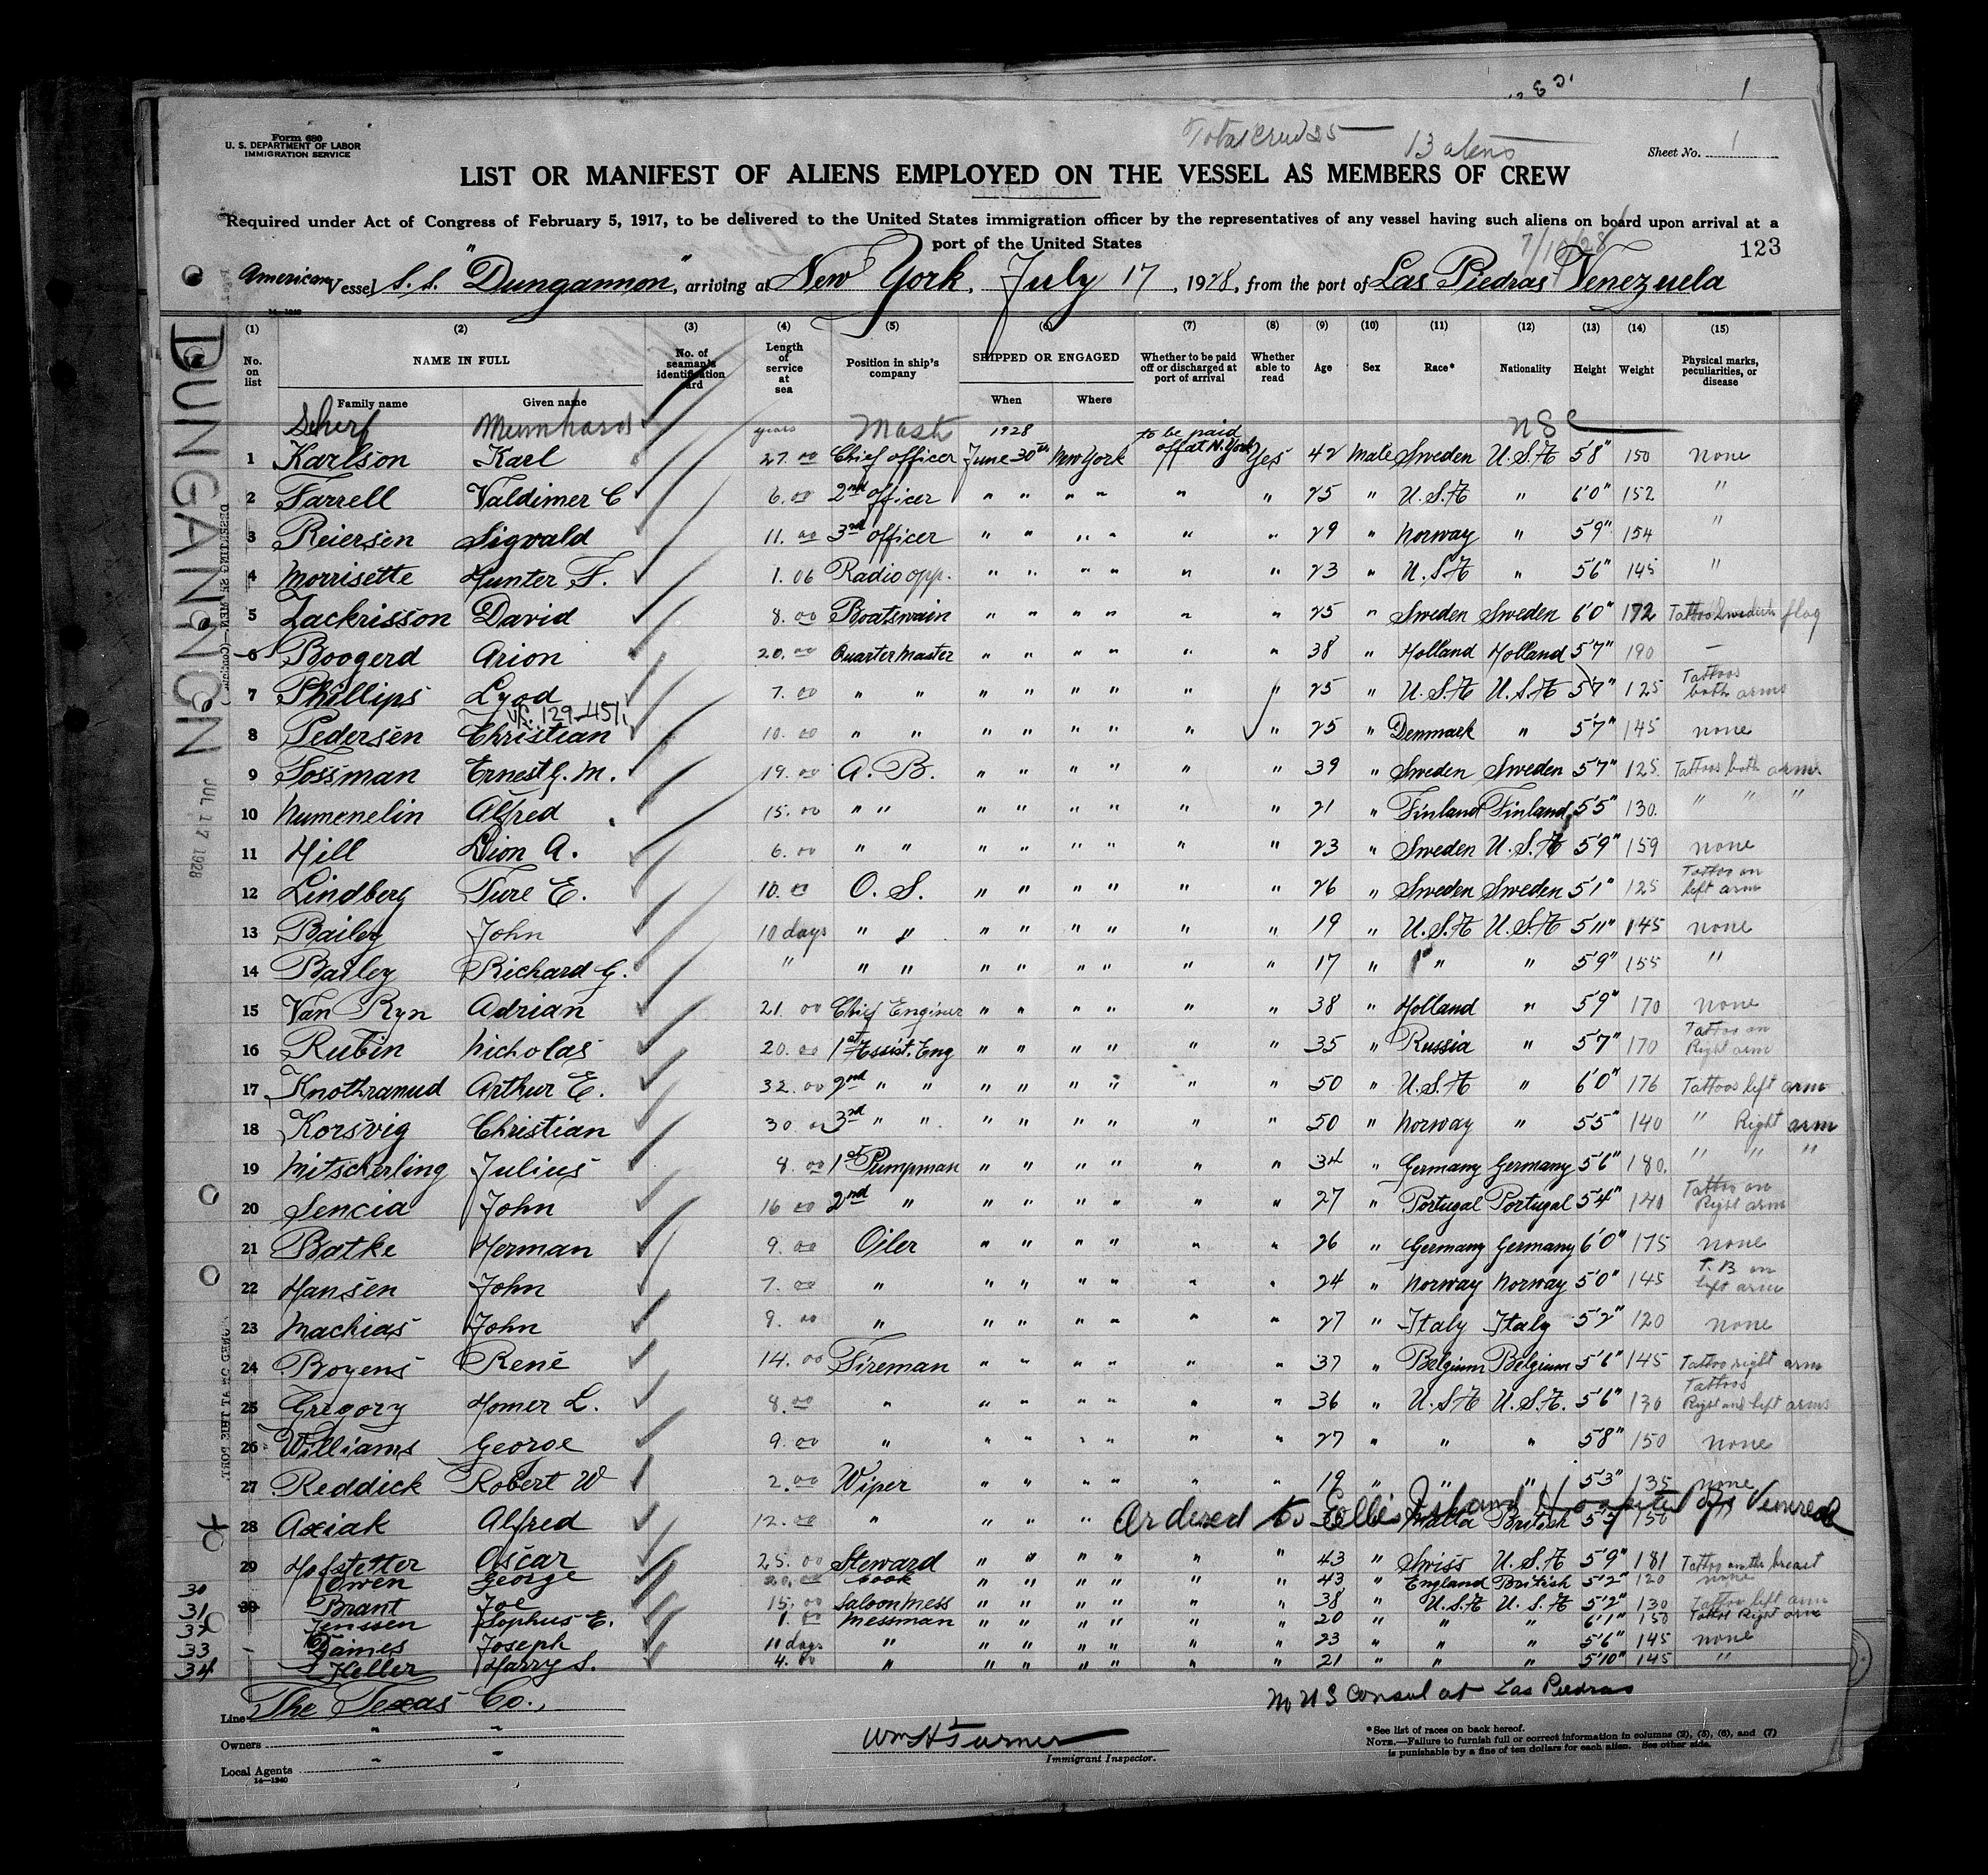 1
Form 680
U. S. DEPARTMENT OF LABOR
IMMIGRATION SERVICE
Total Crew 35
13 aliens
Sheet No. 1
LIST OR MANIFEST OF ALIENS EMPLOYED ON THE VESSEL AS MEMBERS OF CREW
Required under Act of Congress of February 5, 1917, to be delivered to the United States immigration officer by the representatives of any vessel having such aliens on board upon arrival at a
port of the United States
7/10/28
123
American Vessel S.S. "Dungannon", arriving at New York, July 17, 1928, from the port of Las Piedras Venezuela
14-1240
DUNGANNON JUL 17 1928
(1) (2) (3) (4) (5) (6) (7) (8) (9) (10) (11) (12) (13) (14) (15)
No. on list NAME IN FULL No. of seaman's identification card Length of service at sea Position in ship's company SHIPPED OR ENGAGED Whether to be paid off or discharged at port of arrival Whether able to read Age Sex Race* Nationality Height Weight Physical marks, peculiarities, or disease
Family name Given name When Where
Scherf Meinhard Mast USC
years 1928 to be paid
1 Karlson Karl 27.00 Chief officer June 30th New York off at N. York Yes 42 Male Sweden U.S.A 5'8" 150 none
2 Farrell Valdimer C 6.00 2nd officer " " " " " " 25 " U.S.A " 6'0" 152 "
3 Reiersen Sigvald 11.00 3rd officer " " " " " " 29 " Norway " 5'9" 154 "
4 Morrisette Hunter F. 1.06 Radio opp. " " " " " " 23 " U.S.A " 5'6" 145 "
5 Zackrisson David 8.00 Boatswain " " " " " " 25 " Sweden Sweden 6'0" 172 Tattoo Swedish flag
6 Boogerd Arion 20.00 Quarter Master " " " " " " 38 " Holland Holland 5'7" 190 –
7 Phillips Lyod 7.00 " " " " " " " " 25 " U.S.A U.S.A 5'7" 125 Tattoos both arms
129-451
8 Pedersen Christian 10.00 " " " " " " " " 25 " Denmark " 5'7" 145 none
9 Fossman Ernest G. M. 19.00 A. B. " " " " " " 39 " Sweden Sweden 5'7" 125 Tattoos both arms
10 Numenelin Alfred 15.00 " " " " " " " " 21 " Finland Finland 5'5" 130. " " "
11 Hill Lion A. 6.00 " " " " " " " " 23 " Sweden U.S.A 5'9" 159 none
12 Lindberg Ture E. 10.00 O. S. " " " " " " 26 " Sweden Sweden 5'1" 125 Tattoo on left arm
13 Bailey John 10 days " " " " " " " " 19 " U.S.A U.S.A 5'11" 145 none
14 Bailey Richard G. " " " " " " " " " 17 " " " 5'9" 155 "
15 Van Ryn Adrian 21.00 Chief Enginer " " " " " " 38 " Holland " 5'9" 170 none
16 Rubin Nicholas 20.00 1st Assist. Eng " " " " " " 35 " Russia " 5'7" 170 Tattoo on Right arm
17 Knothramud Arthur E. 32.00 2nd " " " " " " " " 50 " U.S.A " 6'0" 176 Tattoos left arm
18 Korsvig Christian 30.00 3rd " " " " " " " " 50 " Norway " 5'5" 140 " Right arm
19 Mitscherling Julius 8.00 1st Pumpman " " " " " " 34 " Germany Germany 5'6" 180. " " "
20 Sencia John 16.00 2nd " " " " " " " 27 " Portugal Portugal 5'4" 140 Tattoo on Right arm
21 Batke Herman 9.00 Oiler " " " " " " 26 " Germany Germany 6'0" 175 none
22 Hansen John 7.00 " " " " " " " 24 " Norway Norway 5'0" 145 T. B on left arm
23 Machias John 9.00 " " " " " " " 27 " Italy Italy 5'2" 120 none
24 Boyens René 14.00 Fireman " " " " " " 37 " Belgium Belgium 5'6" 145 Tattoo right arm
25 Gregory Homer L. 8.00 " " " " " " " 36 " U.S.A U.S.A. 5'6" 130 Tattoos Right and left arms
26 Williams George 9.00 " " " " " " " 27 " " " 5'8" 150 none
27 Reddick Robert W 2.00 Wiper " " " " " " 19 " " " 5'3" 135 none
Ordered to Ellis Island Hospital
28 Axiak Alfred 12.00 " " " " Malta British 5'5" 150
29 Hofstetter Oscar 25.00 Steward " " " " " " 43 " Swiss U.S.A 5'9" 181 Tattoo on the breast
30 Owen George 20.00 Cook " " " " " " 43 " England British 5'2" 120 none
31 Brant Joe 15.00 Saloon Mess " " " " " " 38 " U.S.A U.S.A 5'2" 130 Tattoo left arm
32 Jenssen Sophus E. 1.00 Messman " " " " " " 20 " " " 6'1" 150 Tattoo Right arm
33 James Joseph 10 days " " " " " " " 23 " " " 5'6" 145 none
34 Heller Harry S. 4.00 " " " " " " " 21 " " " 5'10" 145 "
Line The Texas Co.,
Owners " "
Local Agents " "
14-1240
No U S Consul at Las Piedras
Wm H Turner
Immigrant Inspector.
*See list of races on back hereof.
NOTE.—Failure to furnish full or correct information in columns (2), (5), (6), and (7)
is punishable by a fine of ten dollars for each alien. See other side.